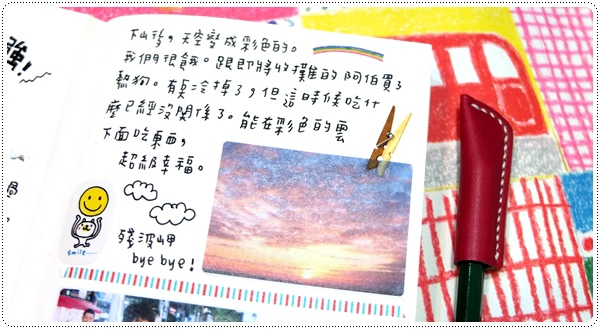 強!
下山後,天空變成彩色的。
我們很餓。跟即將收攤的阿伯買了
熱狗。有點冷掉了,但這時候吃什
麼已經沒關係了。能在彩色的雲
下面吃東西,
超級幸福。
smile
殘波岬
bye bye!